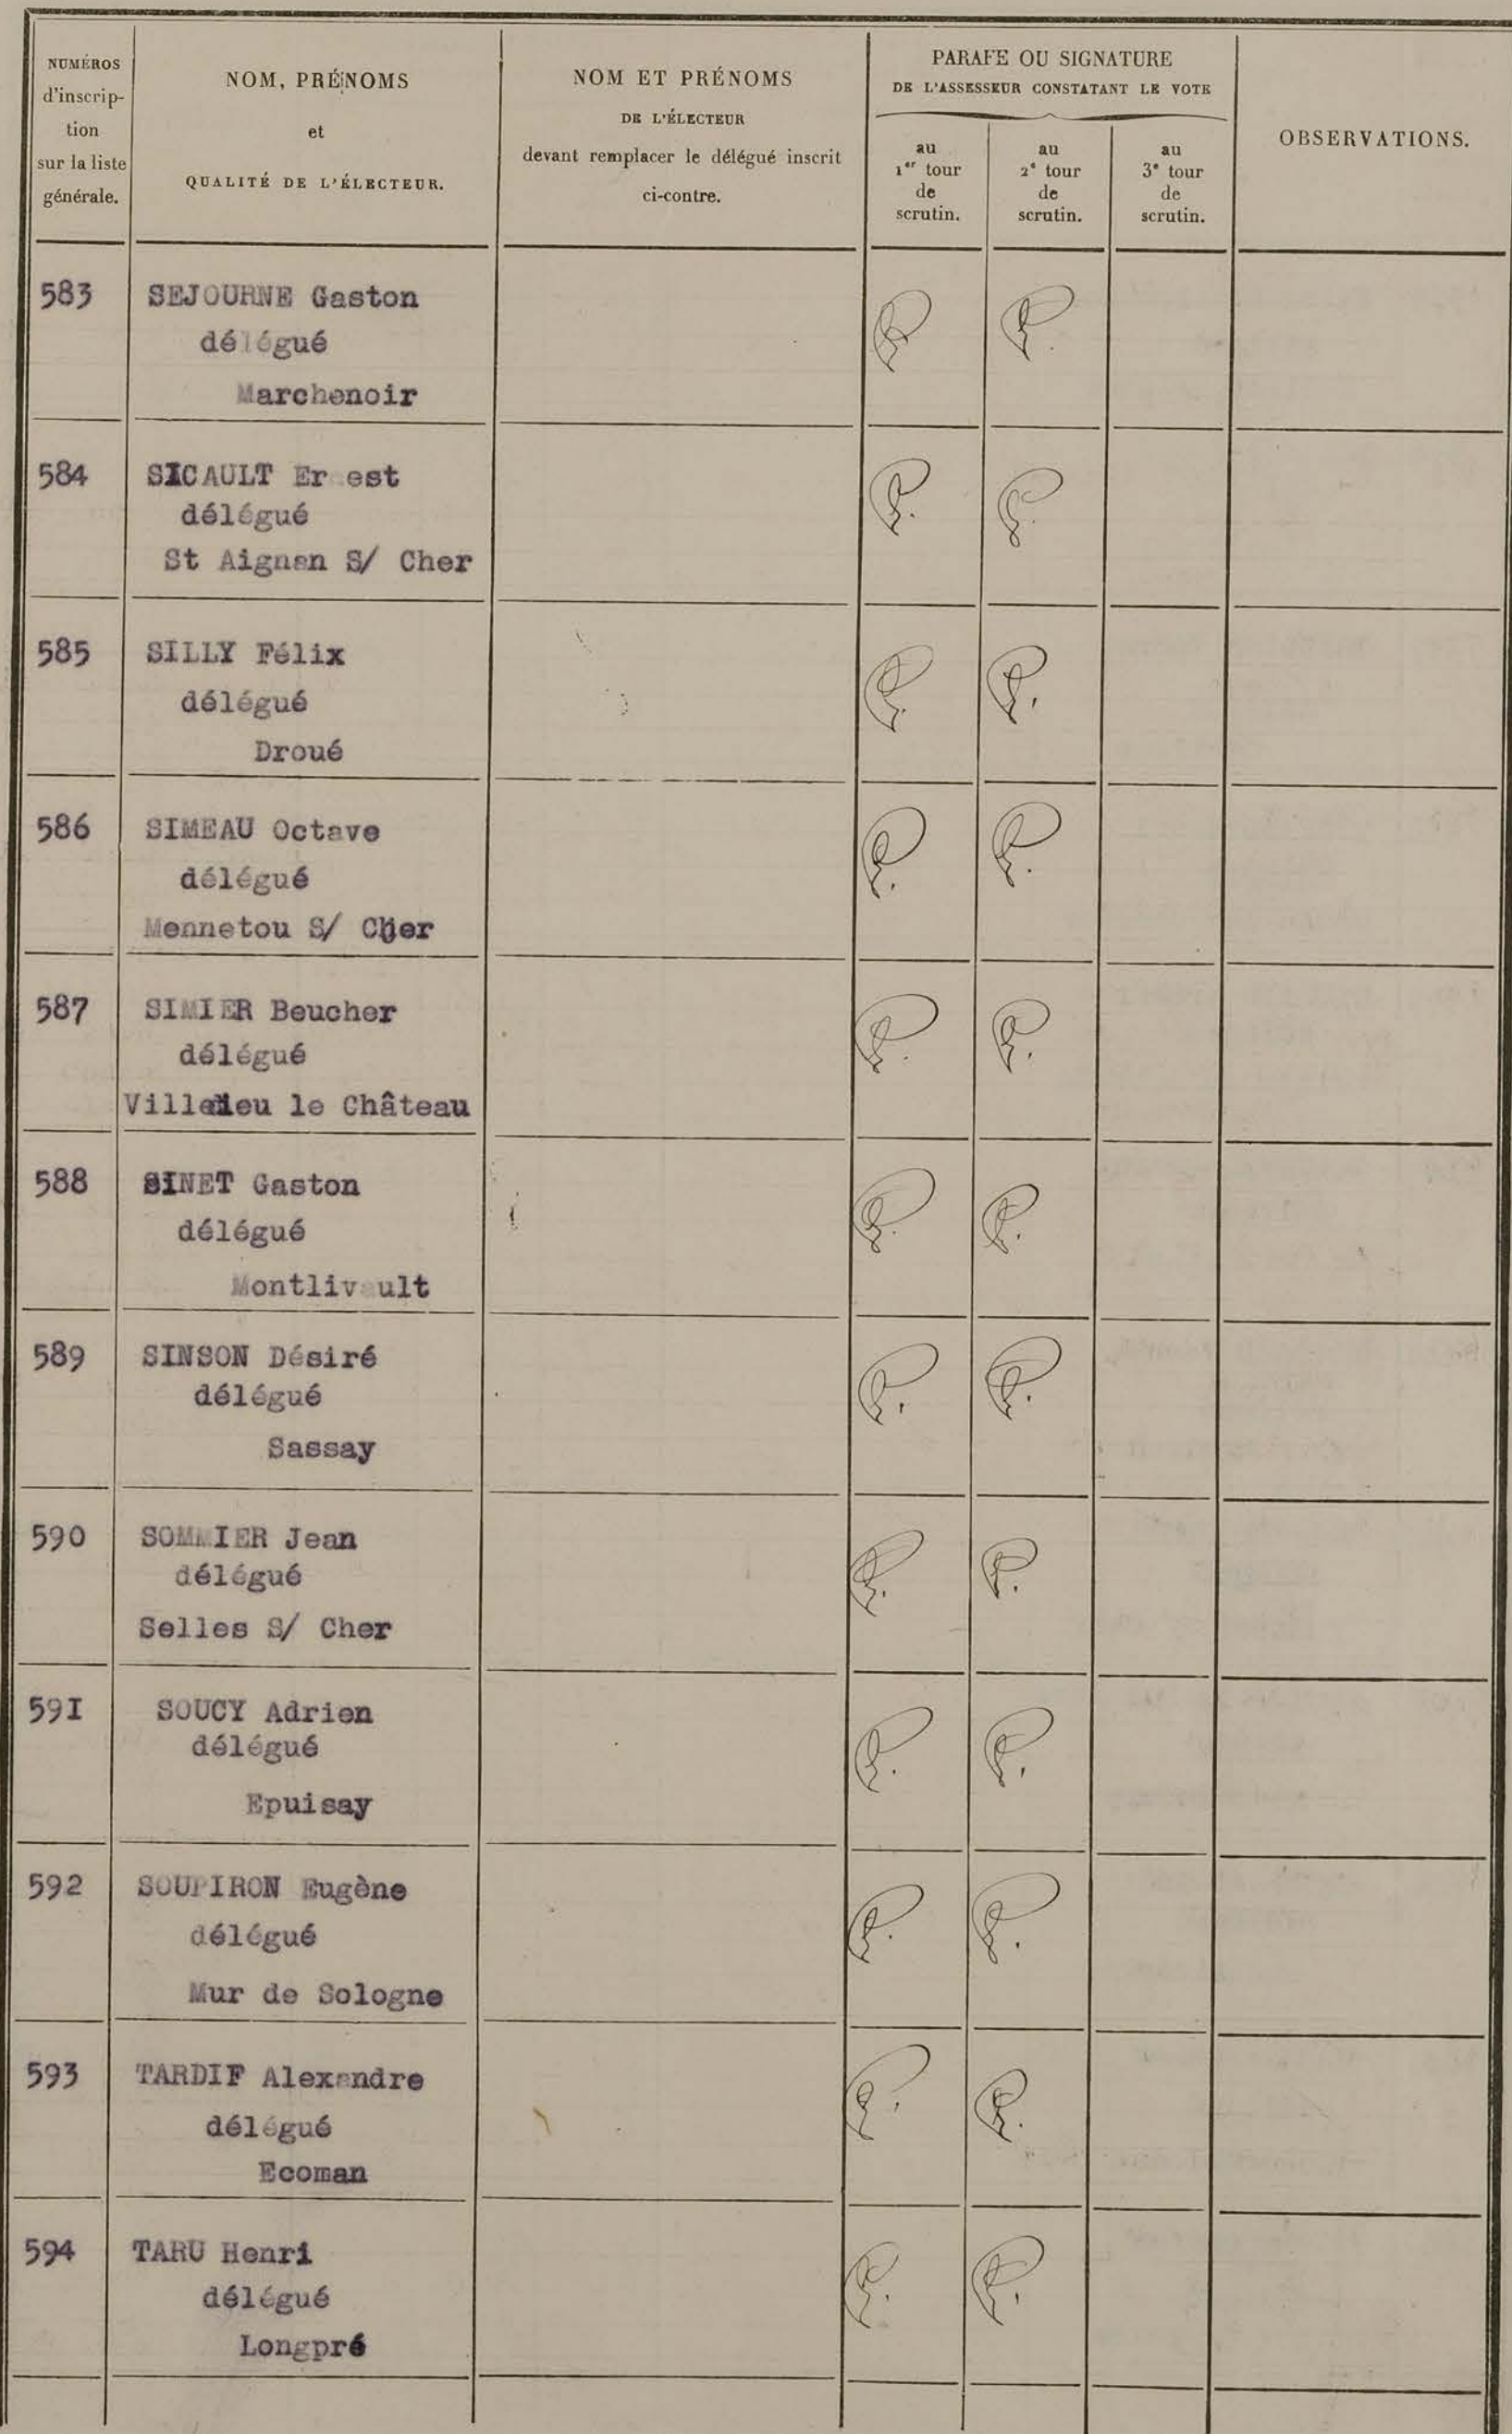 NUMÉROS
d'inscrip-
tion
sur la liste
générale.
NOM, PRÉNOMS
et
QUALITÉ DE L'ÉLECTEUR.
NOM ET PRÉNOMS
DE L'ÉLECTEUR
devant remplacer le délégué inscrit
ci-contre.
PARAFE OU SIGNATURE
DE L'ASSESSEUR CONSTATANT LE VOTE
au
1er tour
de
scrutin.
au
2e tour
de
scrutin.
au
3e tour
de
scrutin.
OBSERVATIONS.
583 SEJOURNE Gaston
délégué
Marchenoir
584 SICAULT Ernest
délégué
St Aignan S/ Cher
585 SILLY Félix
délégué
Droué
586 SIMEAU Octave
délégué
Mennetou S/ Cher
587 SIMIER Beucher
délégué
Villedieu le Château
588 SINET Gaston
délégué
Montlivault
589 SINSON Désiré
délégué
Sassay
590 SOMMIER Jean
délégué
Selles S/ Cher
591 SOUCY Adrien
délégué
Epuisay
592 SOUPIRON Eugène
délégué
Mur de Sologne
593 TARDIF Alexandre
délégué
Ecoman
594 TARU Henri
délégué
Longpré